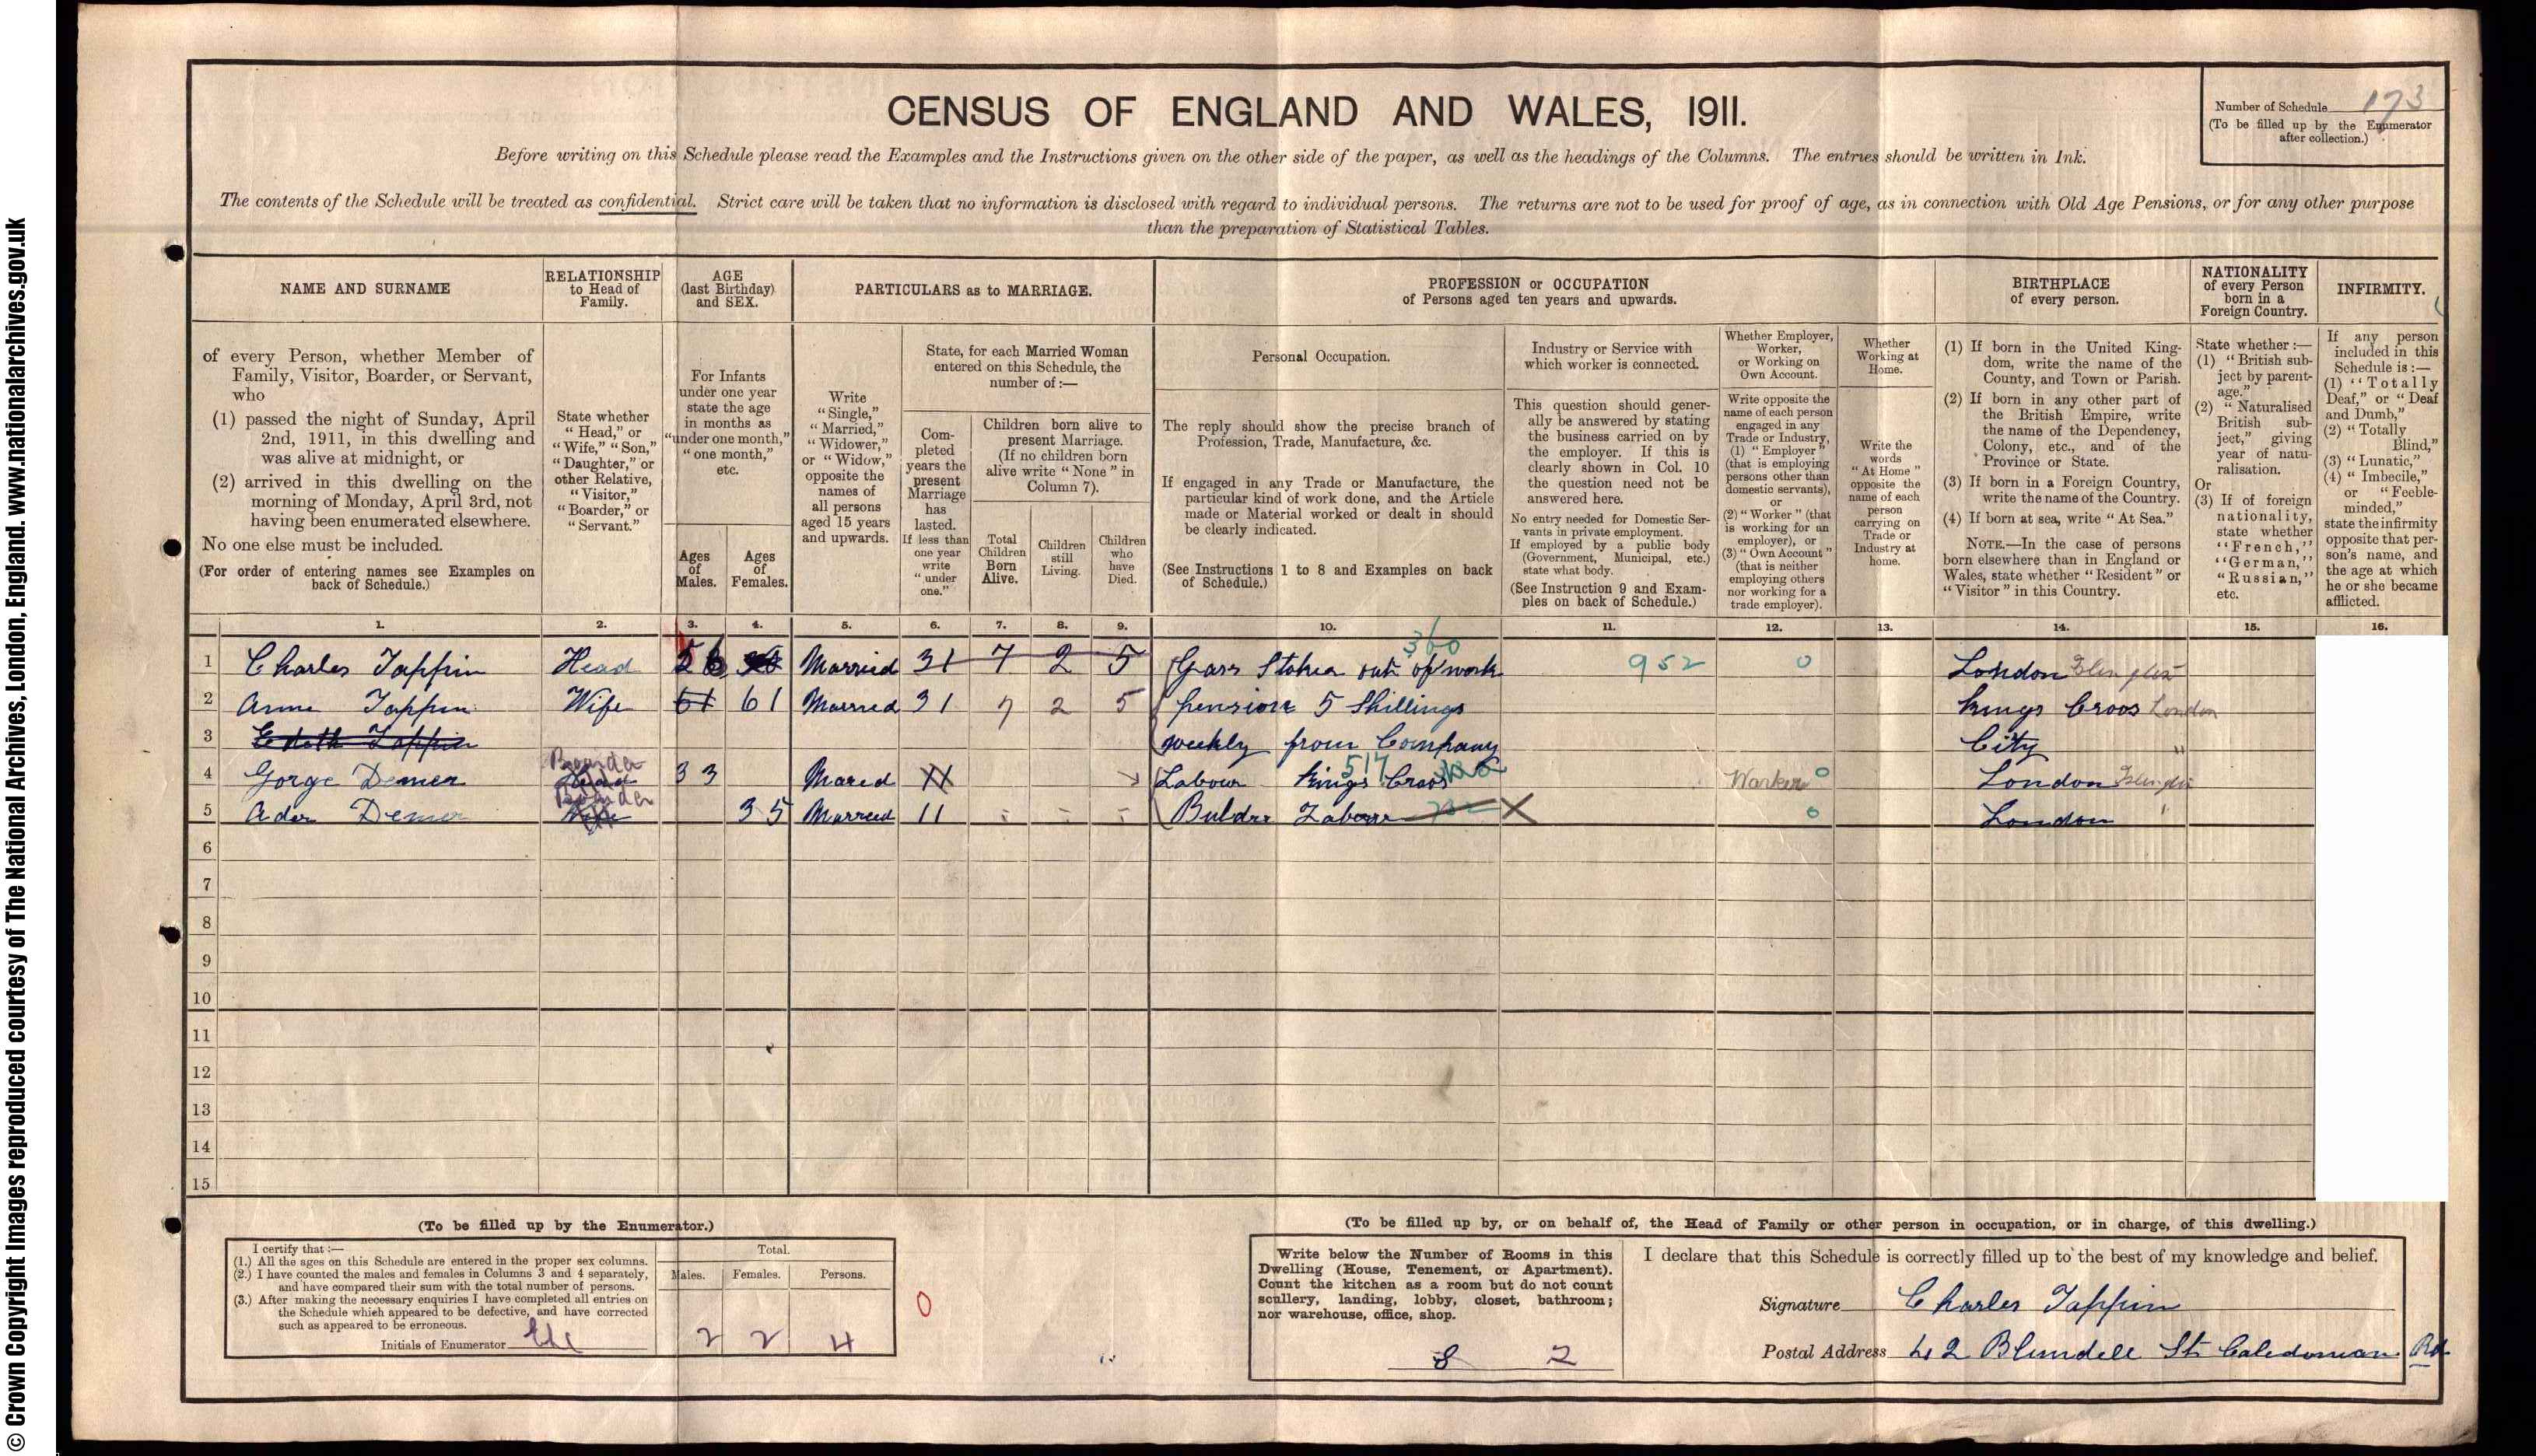 © Crown Copyright Images reproduced courtesy of The National Archives, London, England. www.nationalarchives.gov.uk
CENSUS OF ENGLAND AND WALES, 1911.
Number of Schedule 173
(To be filled up by the Enumerator after collection.)
Before writing on this Schedule please read the Examples and the Instructions given on the other side of the paper, as well as the headings of the Columns. The entries should be written in Ink.
The contents of the Schedule will be treated as confidential. Strict care will be taken that no information is disclosed with regard to individual persons. The returns are not to be used for proof of age, as in connection with Old Age Pensions, or for any other purpose
than the preparation of Statistical Tables.
NAME AND SURNAME
RELATIONSHIP to Head of Family.
AGE (last Birthday) and SEX.
PARTICULARS as to MARRIAGE.
PROFESSION or OCCUPATION of Persons aged ten years and upwards.
BIRTHPLACE of every person.
NATIONALITY of every Person born in a Foreign Country.
INFIRMITY.
of every Person, whether Member of Family, Visitor, Boarder, or Servant, who
(1) passed the night of Sunday, April 2nd, 1911, in this dwelling and was alive at midnight, or
(2) arrived in this dwelling on the morning of Monday, April 3rd, not having been enumerated elsewhere.
No one else must be included.
(For order of entering names see Examples on back of Schedule.)
State whether "Head," or "Wife," "Son," "Daughter," or other Relative, "Visitor," "Boarder," or "Servant."
For Infants under one year state the age in months as "under one month," "one month," etc.
Ages of Males.
Ages of Females.
Write "Single," "Married," "Widower," or "Widow," opposite the names of all persons aged 15 years and upwards.
State, for each Married Woman entered on this Schedule, the number of :—
Completed years the present Marriage has lasted. If less than one year write "under one."
Children born alive to present Marriage. (If no children born alive write "None" in Column 7).
Total Children Born Alive.
Children still Living.
Children who have Died.
Personal Occupation.
The reply should show the precise branch of Profession, Trade, Manufacture, &c.
If engaged in any Trade or Manufacture, the particular kind of work done, and the Article made or Material worked or dealt in should be clearly indicated.
(See Instructions 1 to 8 and Examples on back of Schedule.)
Industry or Service with which worker is connected.
This question should generally be answered by stating the business carried on by the employer. If this is clearly shown in Col. 10 the question need not be answered here.
No entry needed for Domestic Servants in private employment. If employed by a public body (Government, Municipal, etc.) state what body.
(See Instruction 9 and Examples on back of Schedule.)
Whether Employer, Worker, or Working on Own Account.
Write opposite the name of each person engaged in any Trade or Industry, (1) "Employer" (that is employing persons other than domestic servants), or (2) "Worker" (that is working for an employer), or (3) "Own Account" (that is neither employing others nor working for a trade employer).
Whether Working at Home.
Write the words "At Home" opposite the name of each person carrying on Trade or Industry at home.
(1) If born in the United Kingdom, write the name of the County, and Town or Parish.
(2) If born in any other part of the British Empire, write the name of the Dependency, Colony, etc., and of the Province or State.
(3) If born in a Foreign Country, write the name of the Country.
(4) If born at sea, write "At Sea."
NOTE.—In the case of persons born elsewhere than in England or Wales, state whether "Resident" or "Visitor" in this Country.
State whether :—
(1) "British subject by parentage."
(2) "Naturalised British subject," giving year of naturalisation.
Or
(3) If of foreign nationality, state whether "French," "German," "Russian," etc.
If any person included in this Schedule is :—
(1) "Totally Deaf," or "Deaf and Dumb,"
(2) "Totally Blind,"
(3) "Lunatic,"
(4) "Imbecile," or "Feeble-minded,"
state the infirmity opposite that person's name, and the age at which he or she became afflicted.
1. 2. 3. 4. 5. 6. 7. 8. 9. 10. 11. 12. 13. 14. 15. 16.
1 Charles Tappin Head 56 Married 31 7 2 5 Gass Stoker out of work 360 952 0 London Islington
2 Anne Tappin Wife 61 61 Married 31 7 2 5 pension 5 Shillings Kings Cross London
3 Edith Tappin weekly from Company City "
4 Gorge Demer Boarder Head 33 Mared Labour Kings Cross 517 Worker 0 London Islington
5 Ader Demer Boarder Wife 35 Married 11 - - - Bulder Labour 0 London "
6
7
8
9
10
11
12
13
14
15
(To be filled up by the Enumerator.)
I certify that :—
(1.) All the ages on this Schedule are entered in the proper sex columns.
(2.) I have counted the males and females in Columns 3 and 4 separately, and have compared their sum with the total number of persons.
(3.) After making the necessary enquiries I have completed all entries on the Schedule which appeared to be defective, and have corrected such as appeared to be erroneous.
Initials of Enumerator
Total.
Males. Females. Persons.
2 2 4
0
(To be filled up by, or on behalf of, the Head of Family or other person in occupation, or in charge, of this dwelling.)
Write below the Number of Rooms in this Dwelling (House, Tenement, or Apartment). Count the kitchen as a room but do not count scullery, landing, lobby, closet, bathroom; nor warehouse, office, shop.
8 2
I declare that this Schedule is correctly filled up to the best of my knowledge and belief.
Signature Charles Tappin
Postal Address 42 Blundell St Caledonian Rd